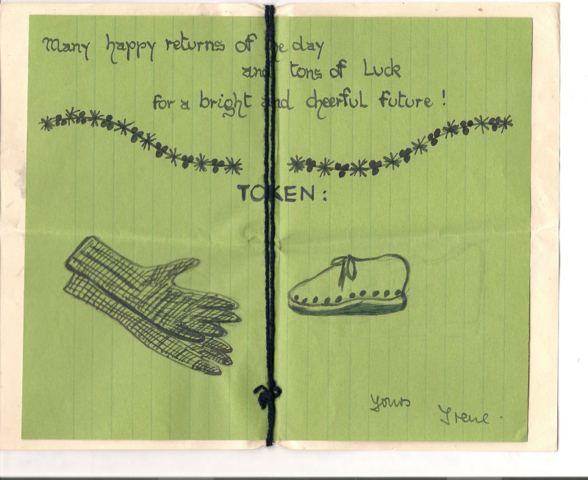 Many happy returns of the day
and tons of Luck
for a bright and cheerful future !
TOKEN :
yours Irene.